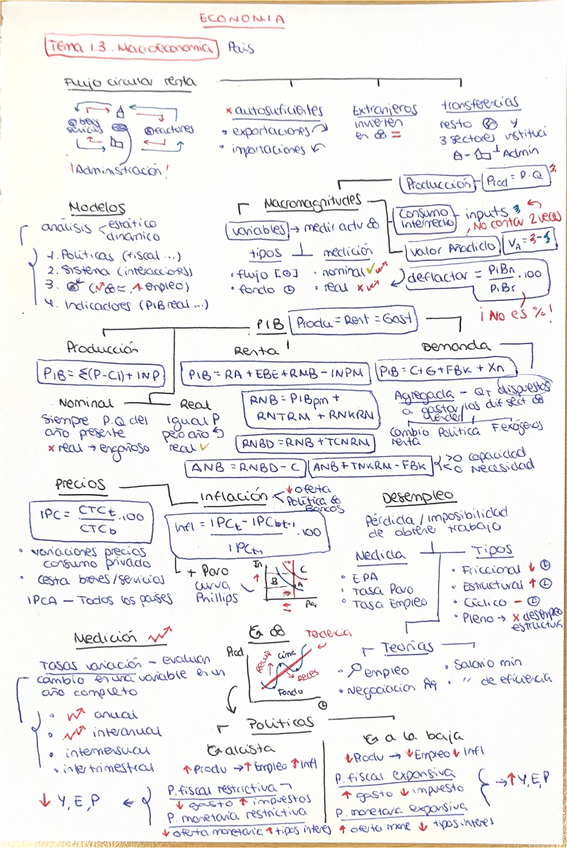 ECONOMIA
Tema 1.3. Macroeconomia País
Flujo circular renta
¡Administración!
× autosuficientes
• exportaciones
• importaciones
Extranjeros
invierten
en =
transferencias
resto y
3 sectores instituci
Admin
Modelos
análisis estático
dinámico
1. Políticas (fiscal ...)
2. Sistema (interacciones)
3. empleo)
4. Indicadores (PIB real ...)
Macromagnitudes
variables → medir activ
tipos medición
• flujo • nominal
• fondo • real
Producción Prod = P·Q
Consumo intermedio inputs
¡No contar 2 veces
Valor Añadido VA =
deflactor = PIBn / PIBr . 100
¡No es %!
PIB Produ = Rent = Gast
Producción
PIB = Σ(P-CI) + INP
Nominal
Siempre P.Q del
año presente
× real → engañoso
Real
Igual P
pero año
real
Renta
PIB = RA + EBE + RMB - INPM
RNB = PIBpm +
RNTRM + RNKRM
RNBD = RNB + TCNRM
ANB = RNBD - C
ANB + TNKRM - FBK
>0 capacidad
<0 Necesidad
Demanda
PIB = C+G+FBK+Xn
Agregada - QT dispuestos
a gastar los dif sect
Cambio Política F. exógenos
renta
Precios
IPC = CTCt / CTCb . 100
• variaciones precios
consumo privado
• cesta bienes/servicios
IPCA - Todos los países
Inflación
↓ oferta
Política
Bancos
Infl = IPCt - IPCt-1 / IPCt-1 . 100
+ Paro
curva
Phillips
Desempleo
Pérdida / imposibilidad
de obtener trabajo
Medida
• EPA
• Tasa Paro
• Tasa Empleo
Tipos
• Friccional ↓
• Estructural ↑
• Cíclico -
• Pleno → × desempleo
estructural
Medición
Tasas variación - evaluan
cambio en una variable en un
año completo
• anual
• interanual
• intermensual
• intertrimestral
Prod
Tendencia
Cima
Fondo
Teorías
• empleo
• Negociacion
• Salario min
• " de eficiencia
Políticas
alcista
↑ Produ → ↑ Empleo ↑ Infl
P. fiscal restrictiva
↓ gasto ↑ impuestos
P. monetaria restrictiva
↓ oferta monetaria ↑ tipos interes
↓ Y, E, P ←
a la baja
↓ Produ → ↓ Empleo ↓ Infl
P. fiscal expansiva
↑ gasto ↓ impuesto
P. monetaria expansiva
↑ oferta mone ↓ tipos interes
→ ↑ Y, E, P